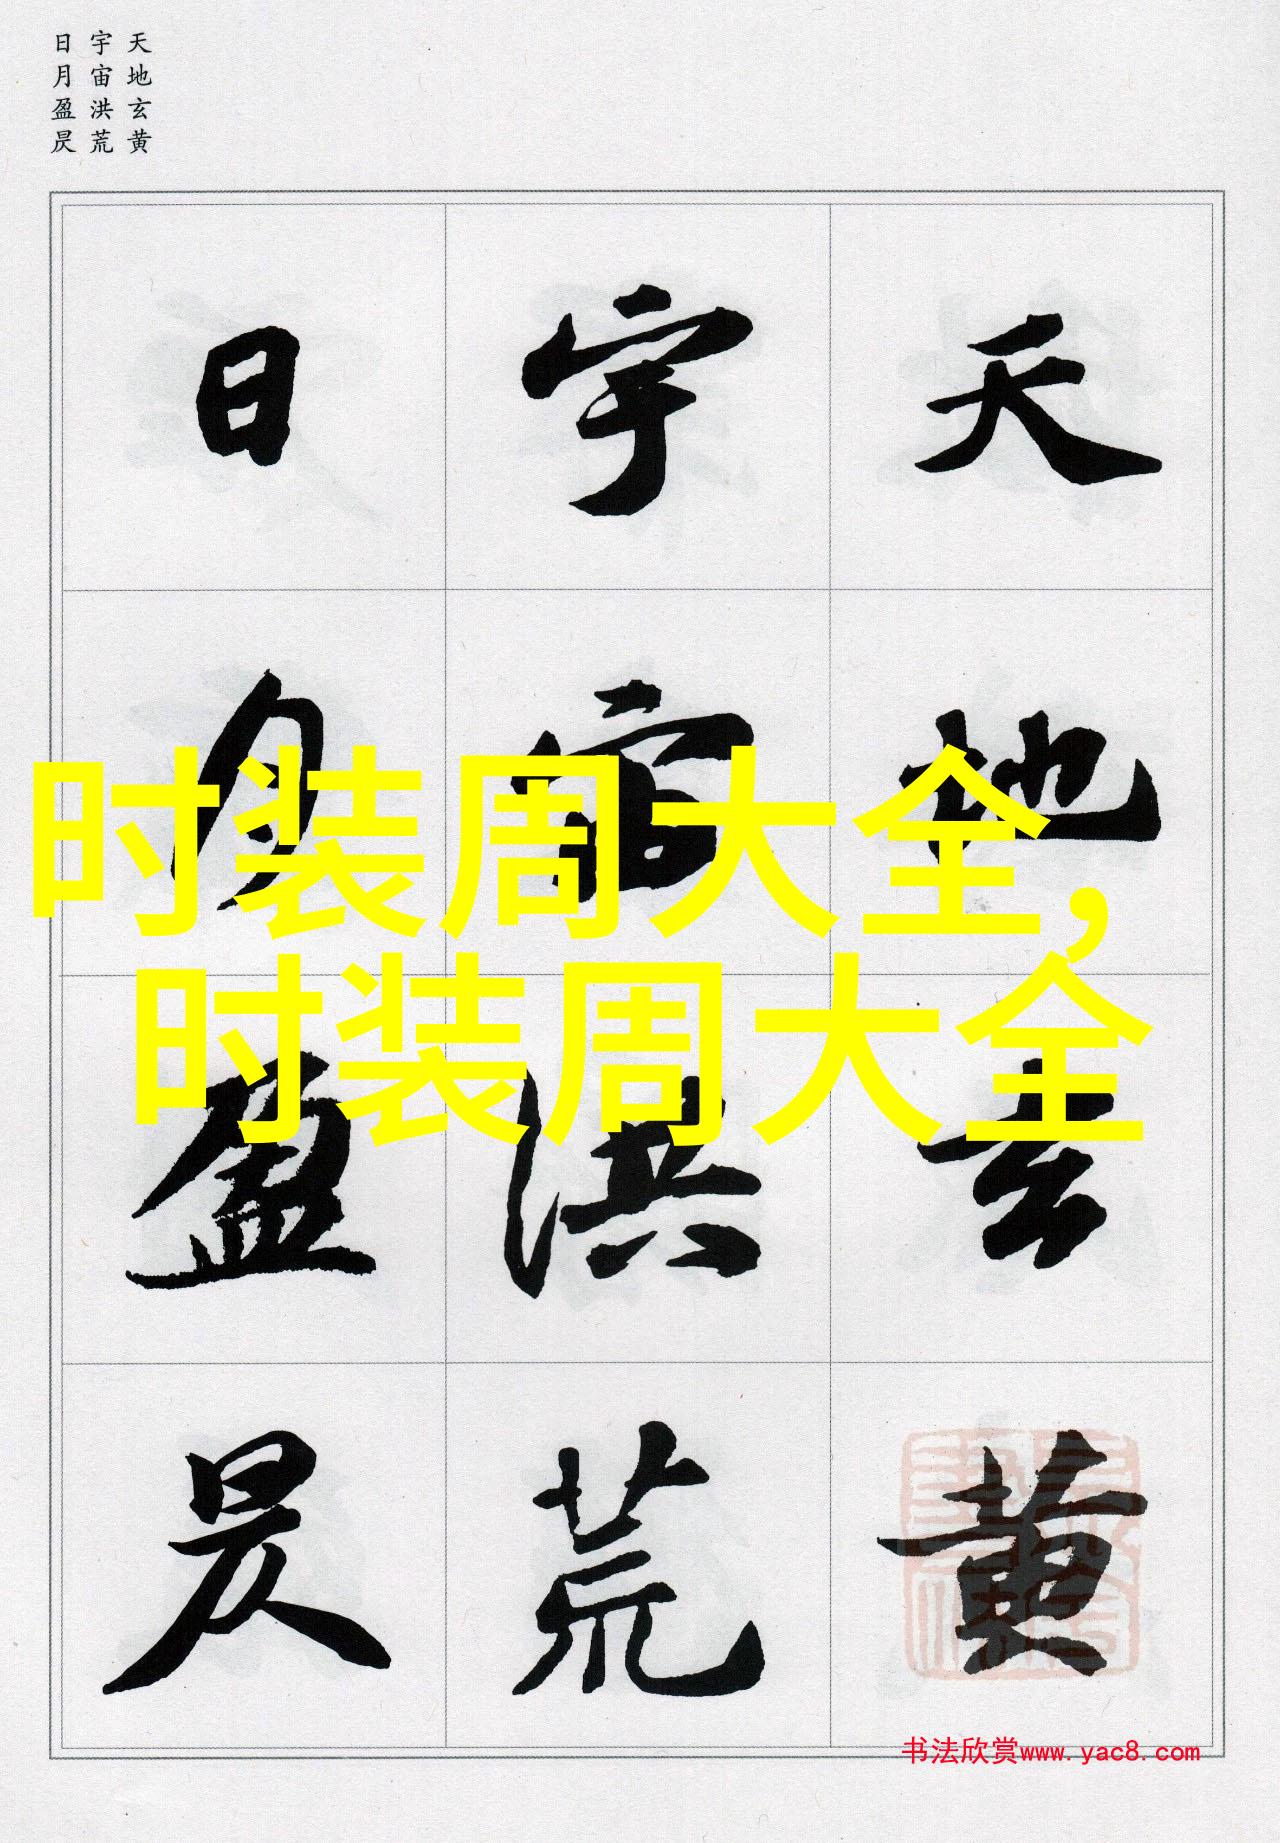 天地玄黄
宇宙洪荒
日月盈昃
天地玄黄
宇宙洪荒
日月盈昃
时装周大全,
时装周大全
书法欣赏www.yac8.com